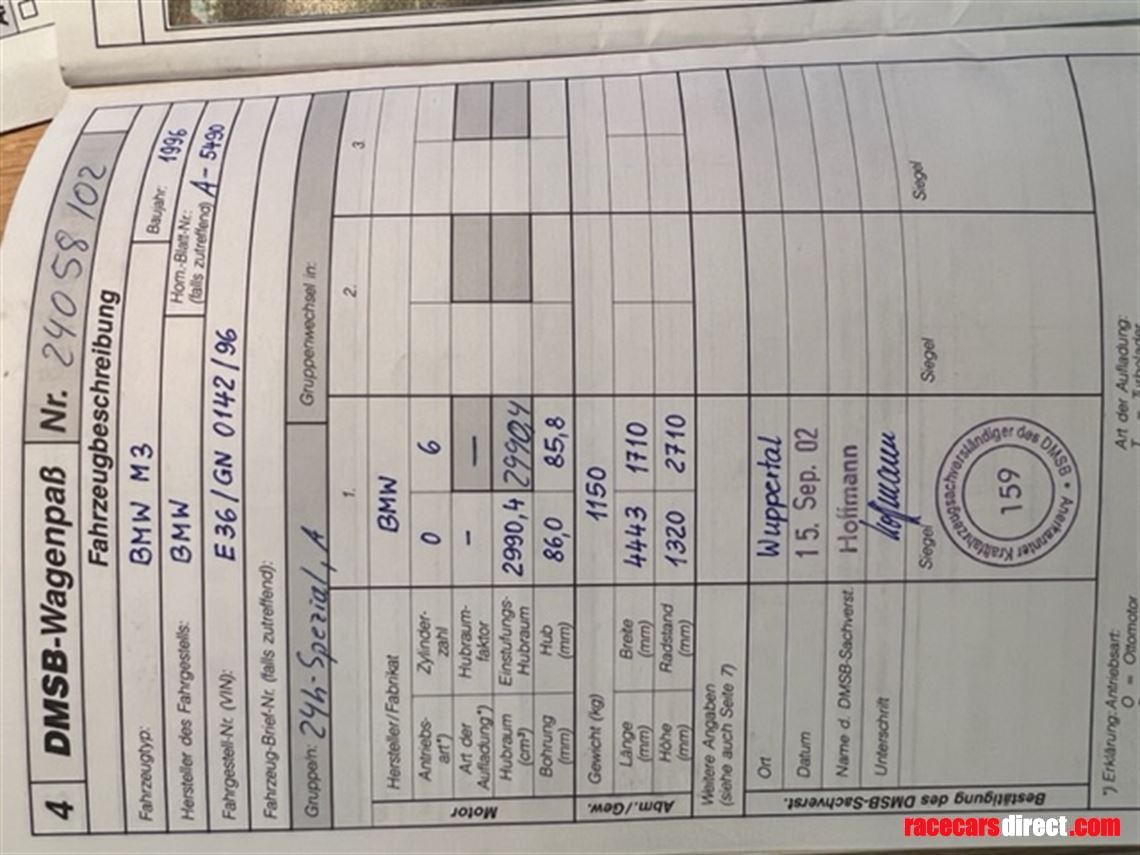 4 DMSB-Wagenpaß Nr. 240 58 102
Fahrzeugbeschreibung
Fahrzeugtyp: BMW M3 Baujahr: 1996
Hersteller des Fahrgestells: BMW Hom.-Blatt-Nr.: (falls zutreffend) A-5490
Fahrgestell-Nr. (VIN): E36/GN 0142/96
Fahrzeug-Brief-Nr. (falls zutreffend):
Gruppe/n: 24h-Spezial, A Gruppenwechsel in:
1. 2. 3.
Motor
Hersteller/Fabrikat BMW
Antriebs-art*) Zylinder-zahl 0 6
Art der Aufladung*) Hubraum-faktor – –
Hubraum (cm³) Einstufungs-Hubraum 2990,4 2990,4
Bohrung (mm) Hub (mm) 86,0 85,8
Abm./Gew.
Gewicht (kg) 1150
Länge (mm) Breite (mm) 4443 1710
Höhe (mm) Radstand (mm) 1320 2710
Weitere Angaben
(siehe auch Seite 7)
Bestätigung des DMSB-Sachverst.
Ort Wuppertal
Datum 15. Sep. 02
Name d. DMSB-Sachverst. Hoffmann
Unterschrift Hoffmann
Siegel Siegel Siegel
Anerkannter Kraftfahrzeugsachverständiger des DMSB •
159
*) Erklärung: Antriebsart: Art der Aufladung:
O = Ottomotor
racecarsdirect.com